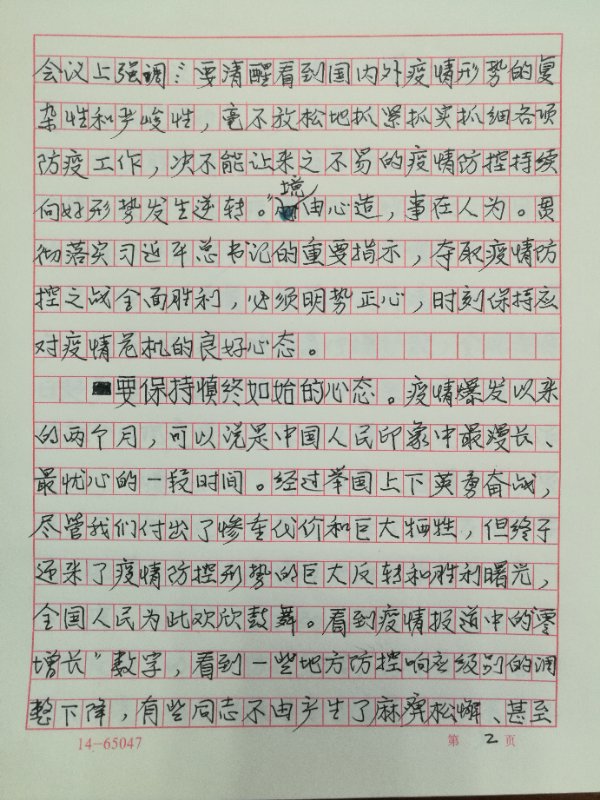 会议上强调:“要清醒看到国内外疫情形势的复
杂性和严峻性，毫不放松地抓紧抓实抓细各项
防疫工作，决不能让来之不易的疫情防控持续
向好形势发生逆转。”境由心造，事在人为。贯
彻落实习近平总书记的重要指示，夺取疫情防
控之战全面胜利，必须明势正心，时刻保持应
对疫情危机的良好心态。
要保持慎终如始的心态。疫情爆发以来
的两个月，可以说是中国人民印象中最漫长、
最忧心的一段时间。经过举国上下英勇奋战，
尽管我们付出了惨重代价和巨大牺牲，但终于
迎来了疫情防控形势的巨大反转和胜利曙光，
全国人民为此欢欣鼓舞。看到疫情报道中的“零
增长”数字，看到一些地方防控响应级别的调
整下降，有些同志不由产生了麻痹松懈、甚至
14-65047 第 2 页